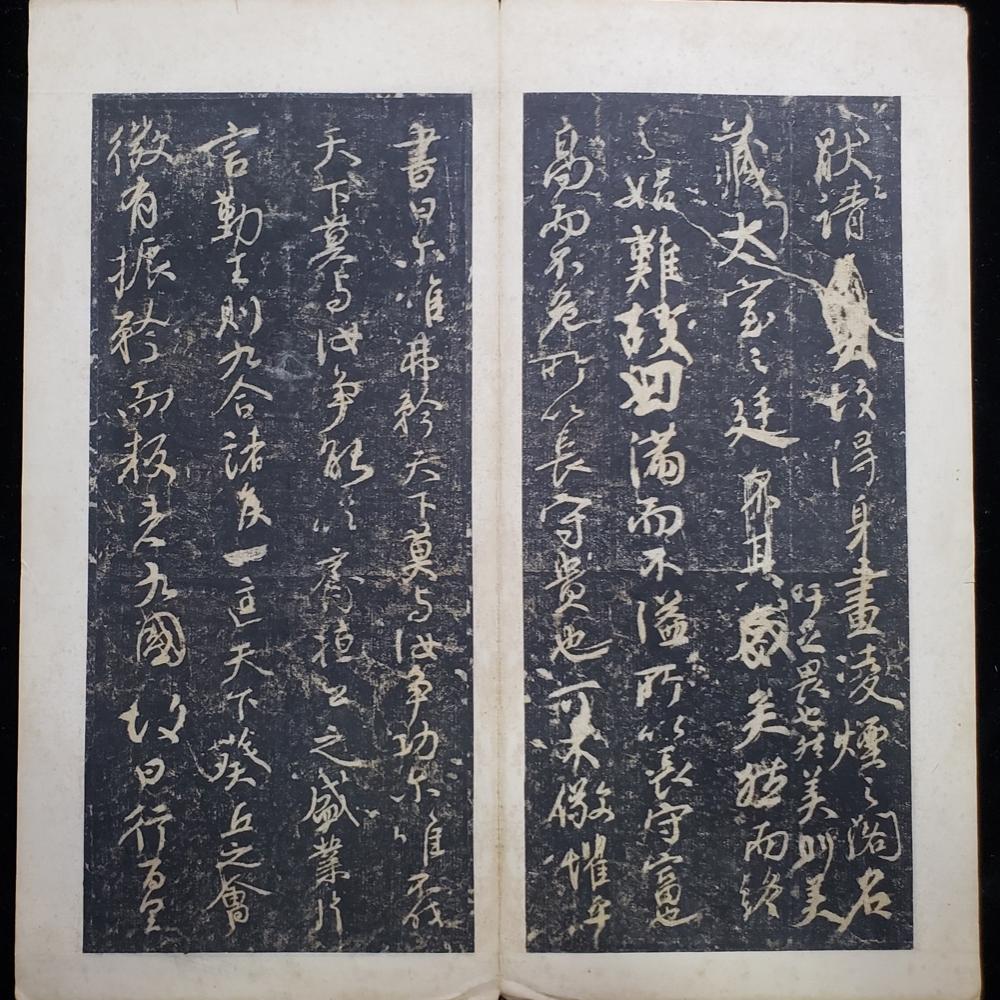 猒之請故得身畫凌煙之閣名
藏太室之廷其盛矣然而終
吁足畏也然美則美
之始難故曰滿而不溢所以長守富也
高而不危所以長守貴也可不儆懼乎
書曰尔唯弗矜天下莫与汝爭功尔唯不伐
天下莫与汝爭能以齊桓公之盛業片
言勤王則九合諸侯一匡天下葵丘之會
微有振矜而叛者九國故曰行百里